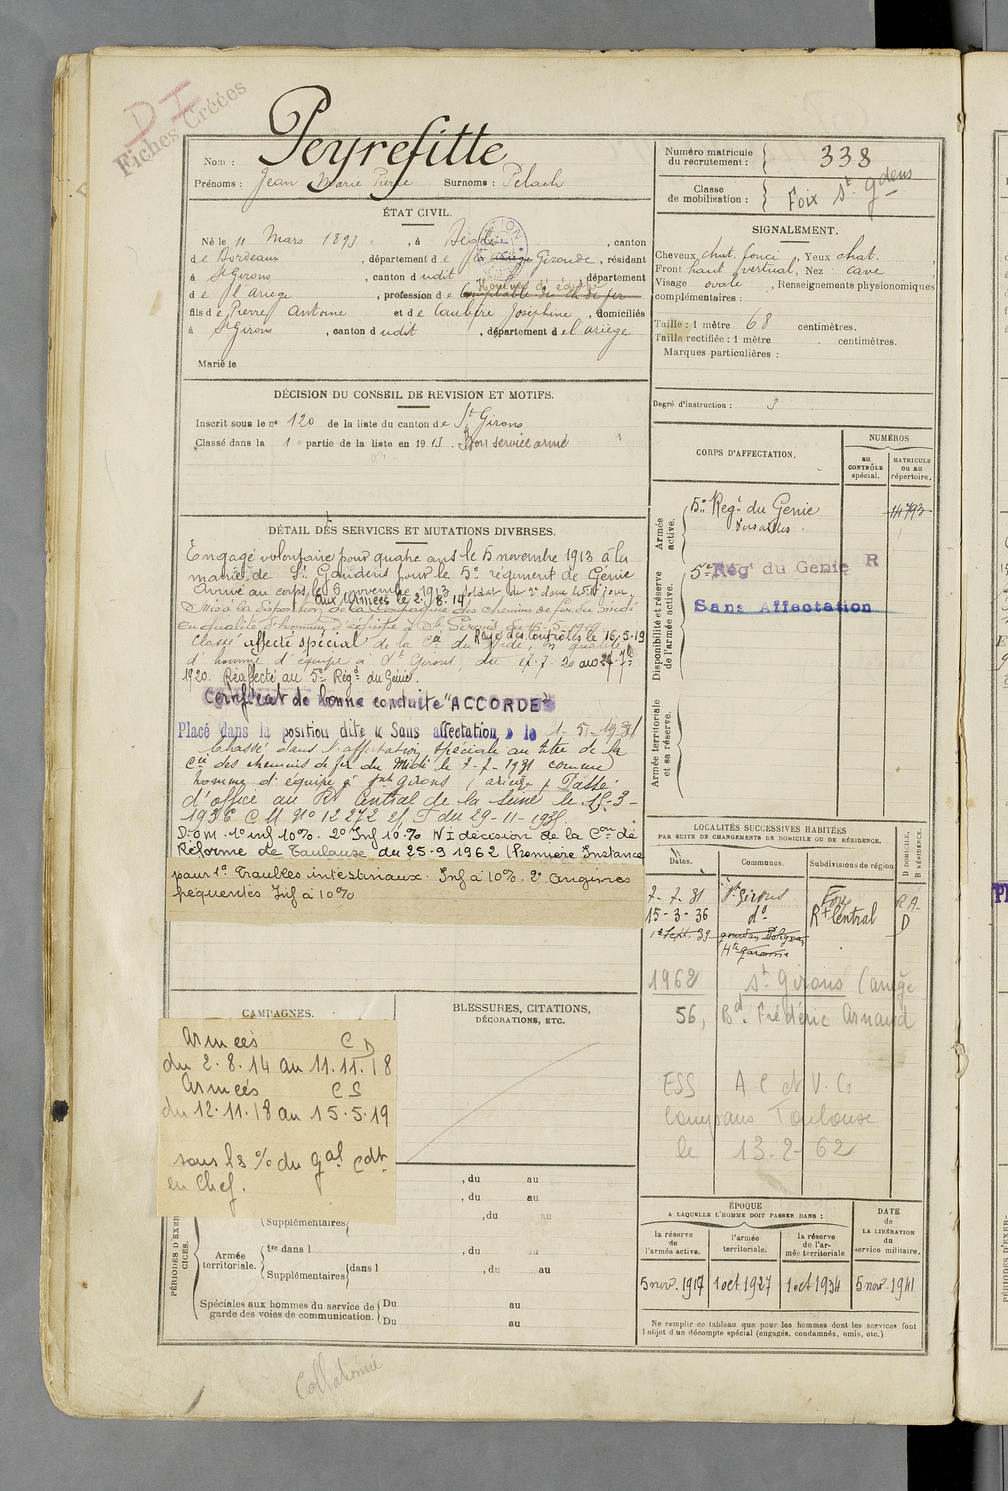 D I
Fiches Créées
Peyrefitte
Nom :
Prénoms : Jean Marie Pierre Surnoms : Pelach
ÉTAT CIVIL.
Né le 11 Mars 1893, à Bègles, canton
de Bordeaux, département de la Gironde, résidant
à St Girons, canton dudit, département
Homme d'équipe
de l'ariège, profession de Comptable des ch de fer
fils de Pierre Antoine et de Loubère Joséphine, domiciliés
à St Girons, canton dudit, département de l'ariège
Marié le
DÉCISION DU CONSEIL DE REVISION ET MOTIFS.
Inscrit sous le n° 120 de la liste du canton de St Girons
Classé dans la 1e partie de la liste en 1913. Bon service armé
DÉTAIL DES SERVICES ET MUTATIONS DIVERSES.
Engagé volontaire pour quatre ans le 5 novembre 1913 à la
mairie de St Gaudens pour le 5e régiment de Génie
arrivé au corps le 6 novembre 1913 soldat de 2e classe
Aux armées le 2.8.14
Mis à la disposition de la Compagnie des chemins de fer du midi
en qualité d'homme d'équipe à St Girons du 16-5-1919
Rayé des contrôles le 16-5-19
Classé affecté spécial de la Cie du Midi, en qualité
d'homme d'équipe à St Girons, du 17.7.20
1920. Réaffecté au 5me Régt du Génie.
Certificat de bonne conduite "ACCORDÉ"
Placé dans la position dite « Sans affectation » le 1-5-1931
Classé dans l'affectation spéciale au titre de la
Cie des chemins de fer du Midi le 2-7-1931 comme
homme d'équipe à Snt Girons ariège. Passé
d'office au Rt Central de la Seine le 15-3-
1936 C M N° 12272 du 29-11-1935.
D.O.M. 1° inf 10%. 2° Inf 10% NI décision de la Con de
Réforme de Toulouse du 25-9 1962 (Première Instance
pour 1° troubles intestinaux. Inf à 10%. 2° angines
fréquentes Inf à 10%
CAMPAGNES.
Armées C D
du 2.8.14 au 11.11.18
Armées C S
du 12.11.18 au 15.5.19
sous ls % du gal Cdt
en Chef.
BLESSURES, CITATIONS,
DÉCORATIONS, ETC.
, du au
, du au
PÉRIODES D'EXERCICES.
Supplémentaires , du au
Armée territoriale.
1re dans l , du au
Supplémentaires dans l , du au
Spéciales aux hommes du service de
garde des voies de communication.
Du au
Du au
Collationné
Numéro matricule
du recrutement : 338
Classe
de mobilisation : Foix St Gdens
SIGNALEMENT.
Cheveux chat. foncé, Yeux chat.
Front haut vertical, Nez cave
Visage ovale, Renseignements physionomiques
complémentaires :
Taille : 1 mètre 68 centimètres.
Taille rectifiée : 1 mètre centimètres.
Marques particulières :
Degré d'instruction : 3
CORPS D'AFFECTATION.
NUMÉROS
au
CONTRÔLE
spécial.
MATRICULE
ou au
répertoire.
Armée
active.
5e Regt du Genie 14793
Versailles.
Disponibilité et réserve
de l'armée active.
5me Rég du Genie R
Sans Affectation
Armée territoriale
et sa réserve.
LOCALITÉS SUCCESSIVES HABITÉES
PAR SUITE DE CHANGEMENTS DE DOMICILE OU DE RÉSIDENCE.
Dates. Communes. Subdivisions de région
D DOMICILE.
R RÉSIDENCE.
2-7-31 St Girons Foix R.A.
15-3-36 do Rt Central D
1er Sept. 39 gourdan Polignan
Hte garonne
1962 St Girons (ariège
56, Bd. Frédéric Arnaud
ESS A C et V. G
Compans Toulouse
le 13-2-62
ÉPOQUE
A LAQUELLE L'HOMME DOIT PASSER DANS :
DATE
de
LA LIBÉRATION
du
service militaire.
la réserve
de
l'armée active.
l'armée
territoriale.
la réserve
de l'ar-
mée territoriale
5 nov. 1917 1 oct 1927 1 oct 1934 5 nov. 1941
Ne remplir ce tableau que pour les hommes dont les services font
l'objet d'un décompte spécial (engagés, condamnés, omis, etc.)